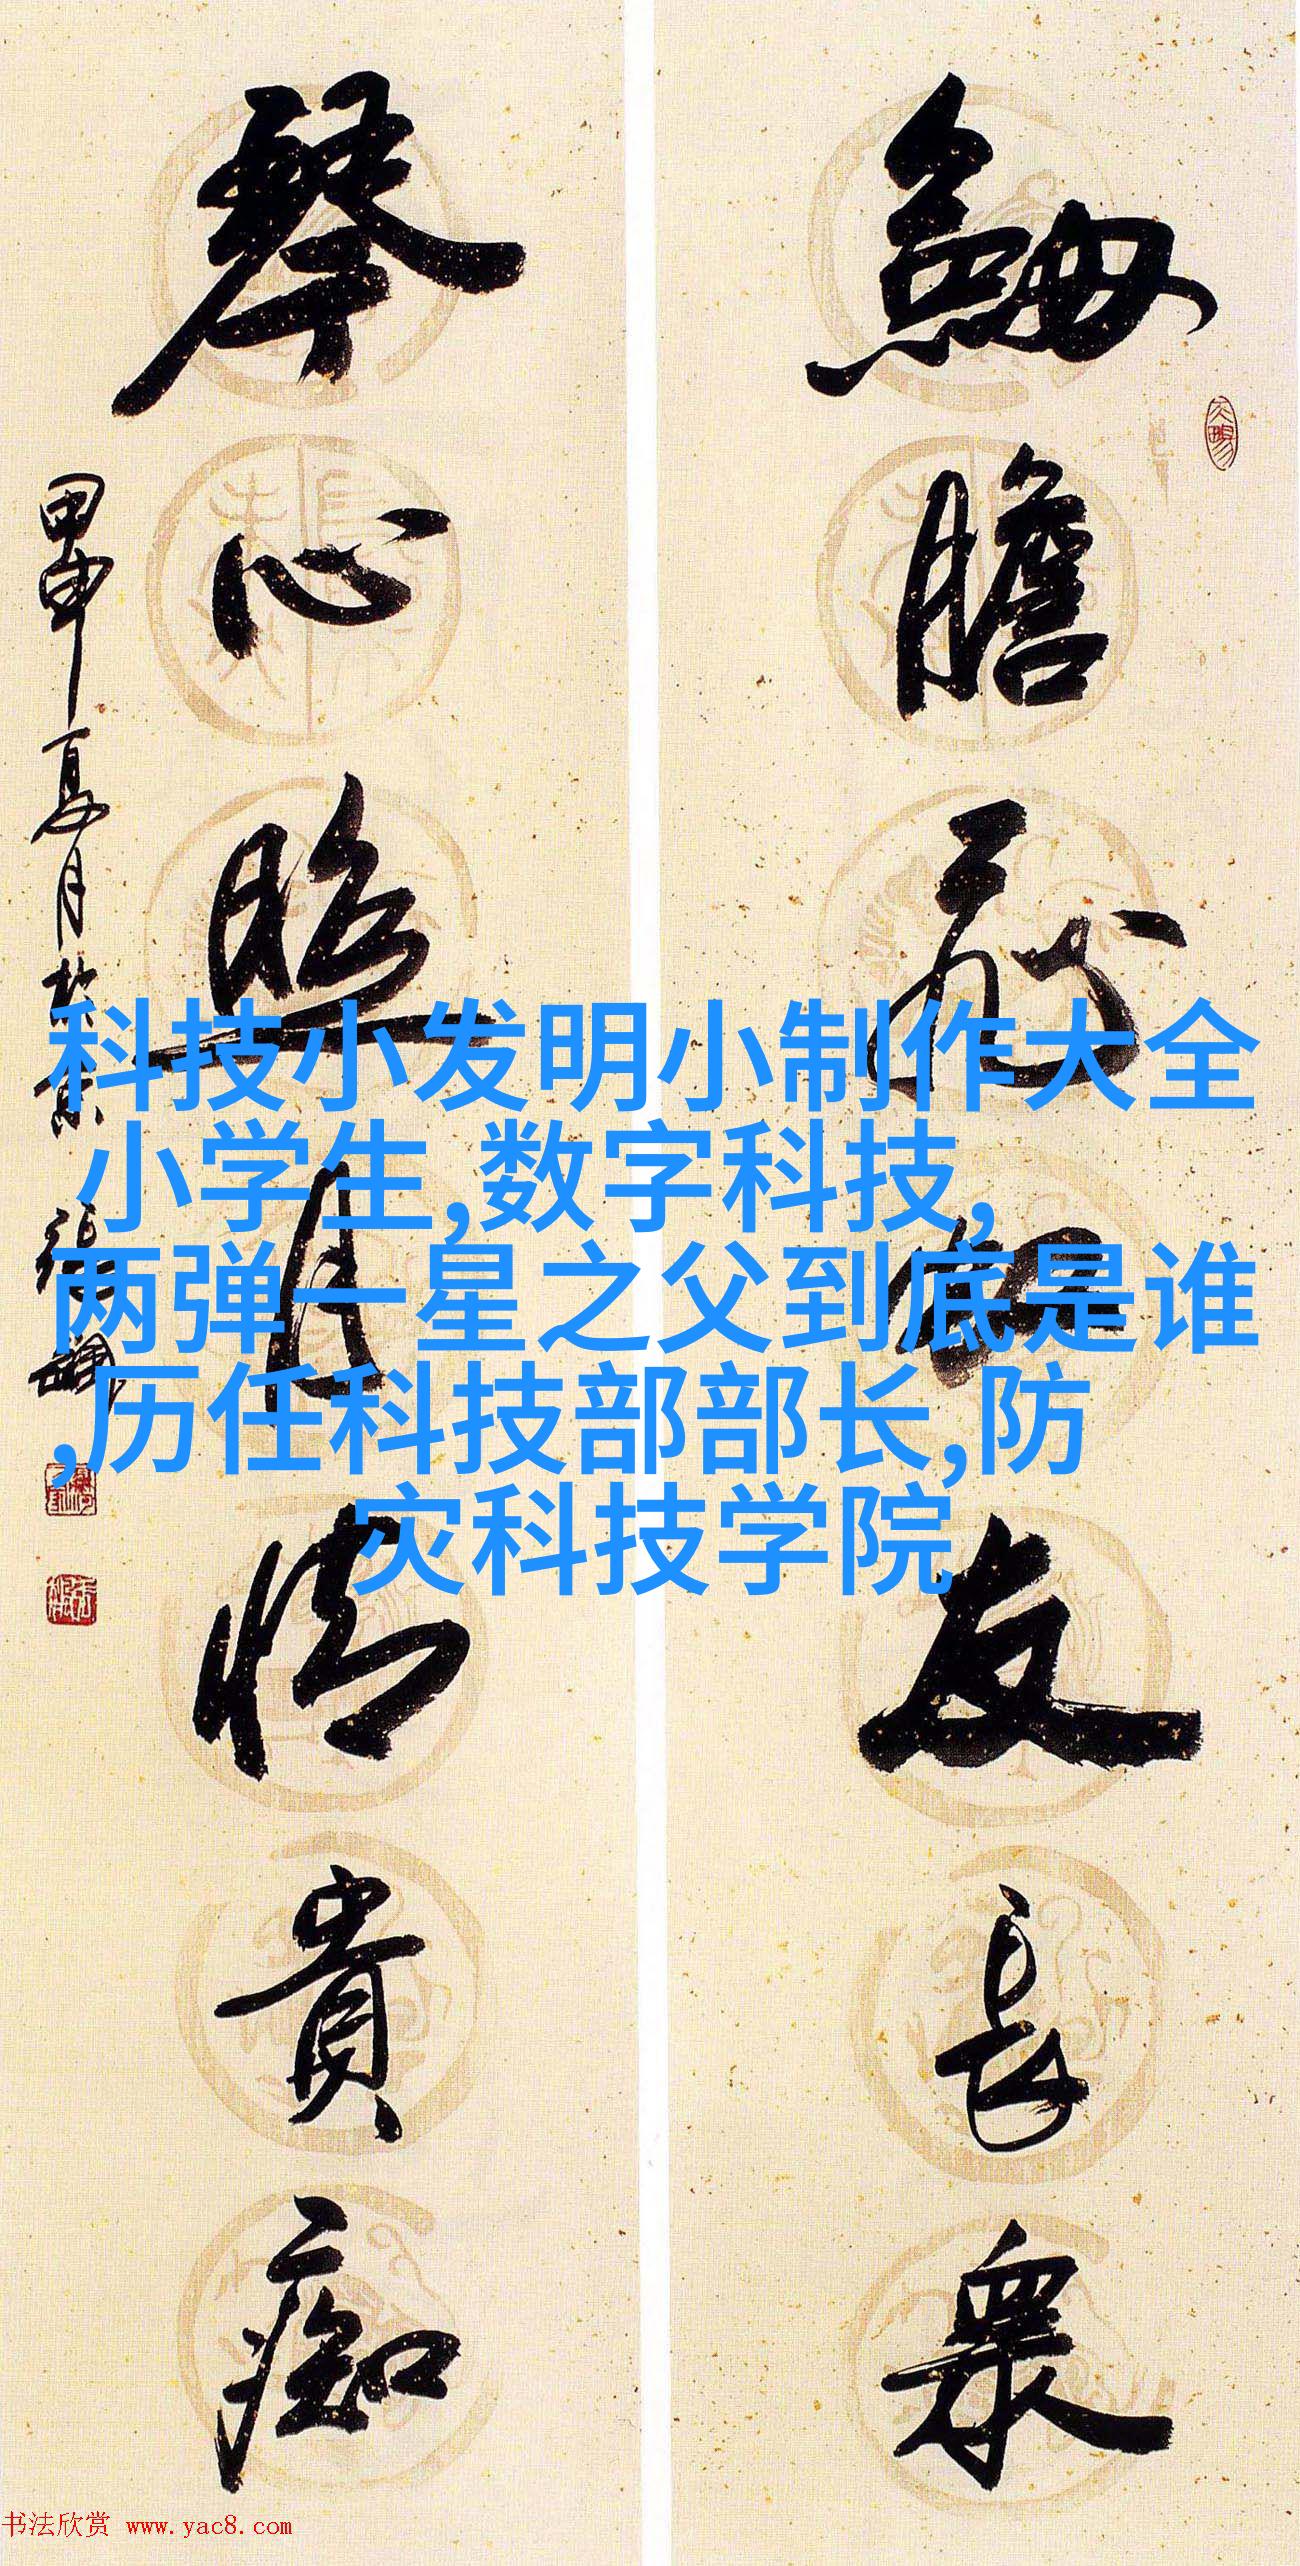 科技小发明小制作大全
小学生,数字科技,
两弹一星之父到底是谁
,历任科技部部长,防
灾科技学院
膽
友長眾
琴心照月情貴痴
甲申夏月於京
书法欣赏 www.yac8.com